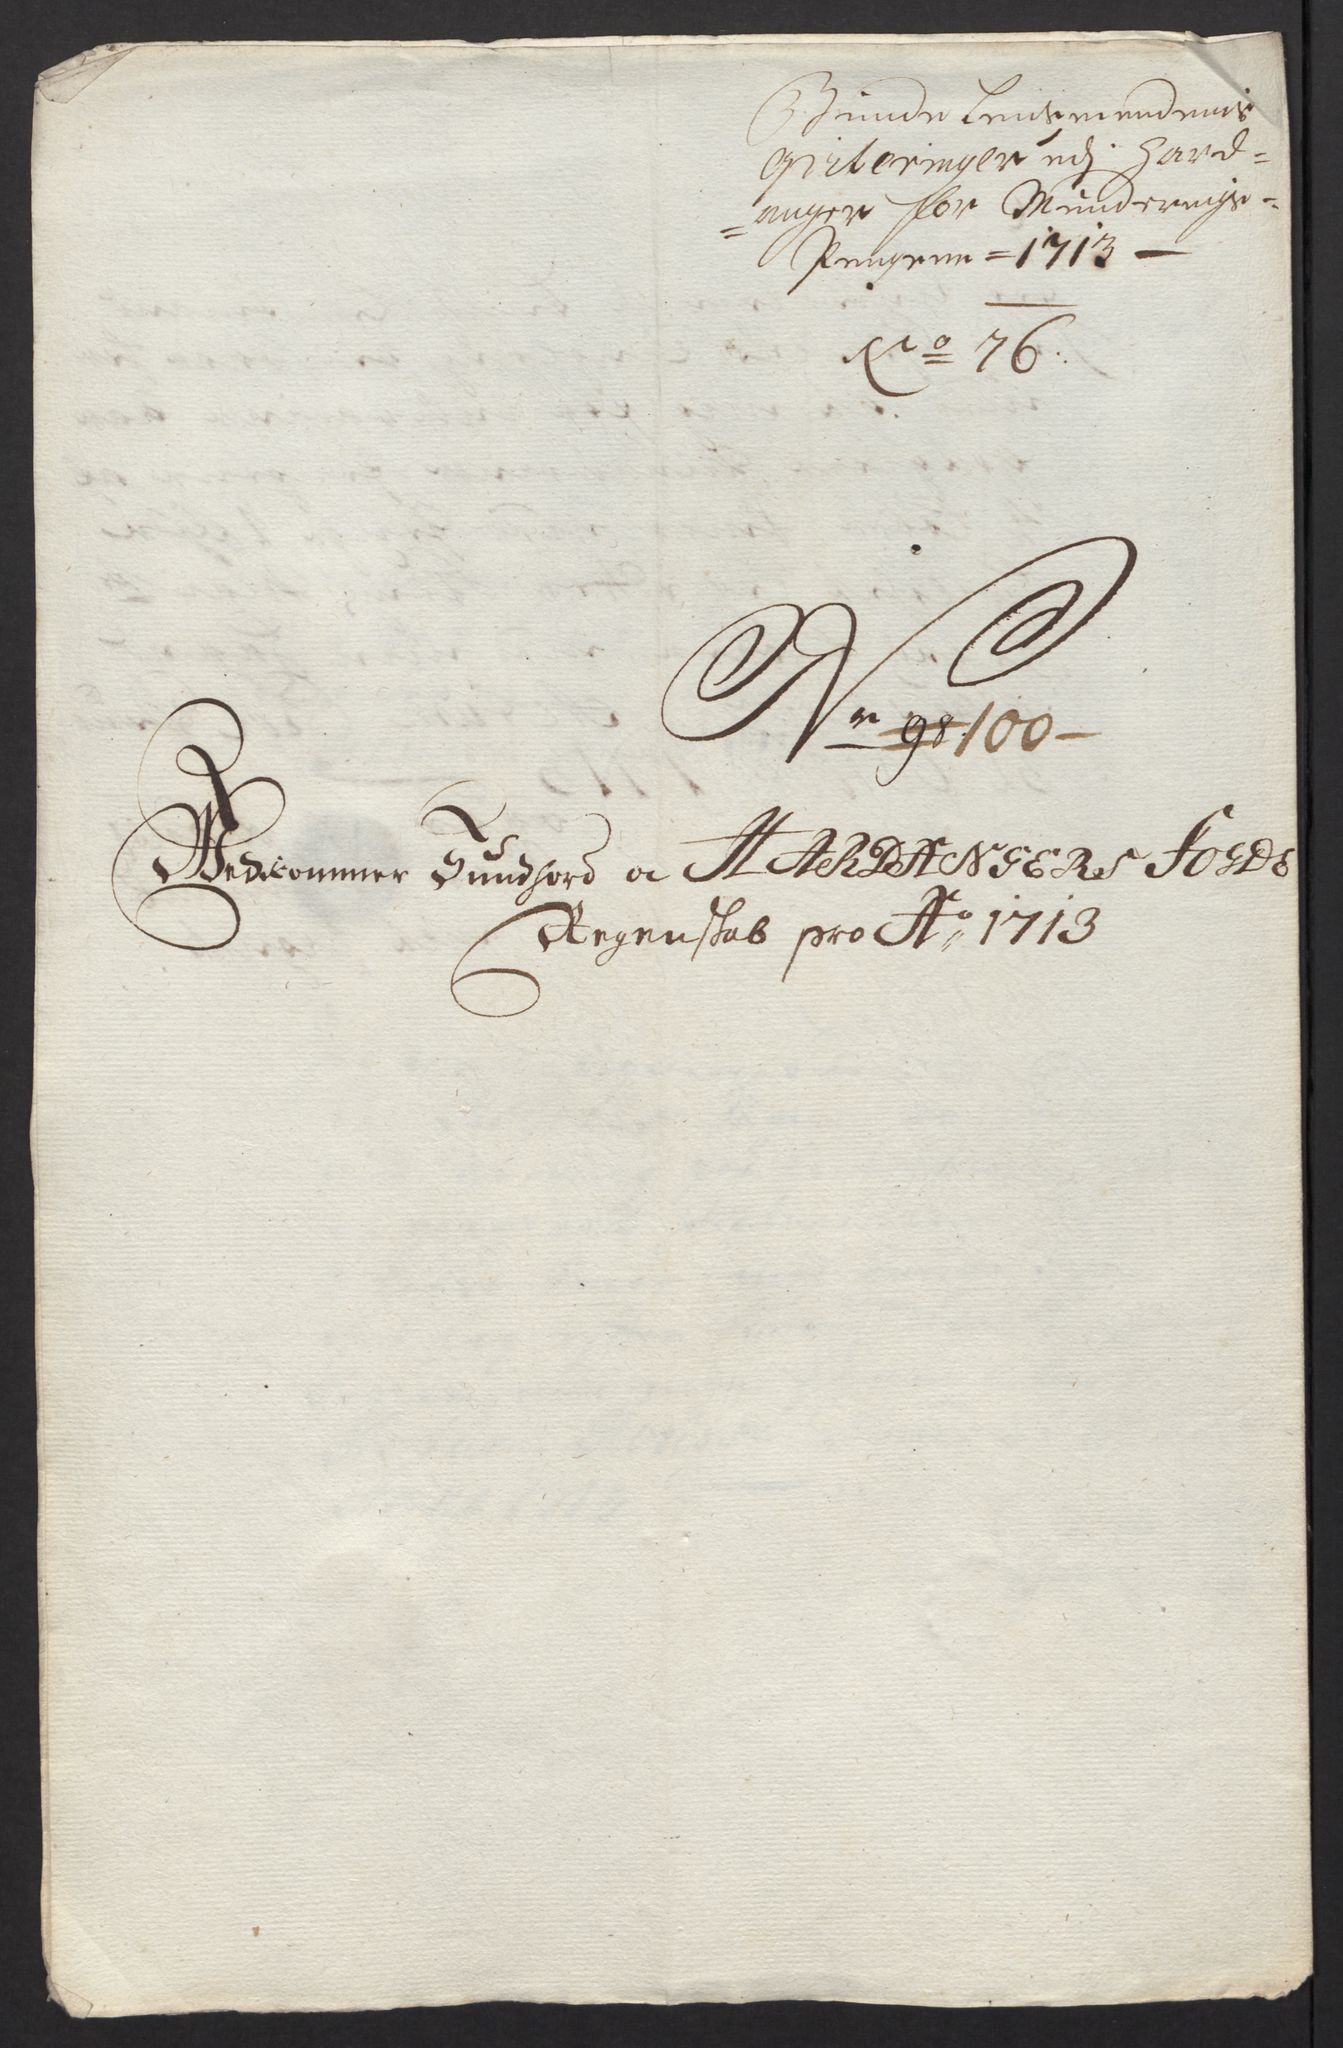 Bunde Lensmendenis
qviteringer udj Hard=
=anger for Munderings=
Pengene = 1713 —
No 76.
Nr 98 100 —
Vedkommer Sundhord oc HARDANGERS FOGDE
Regenskab pro Ao 1713